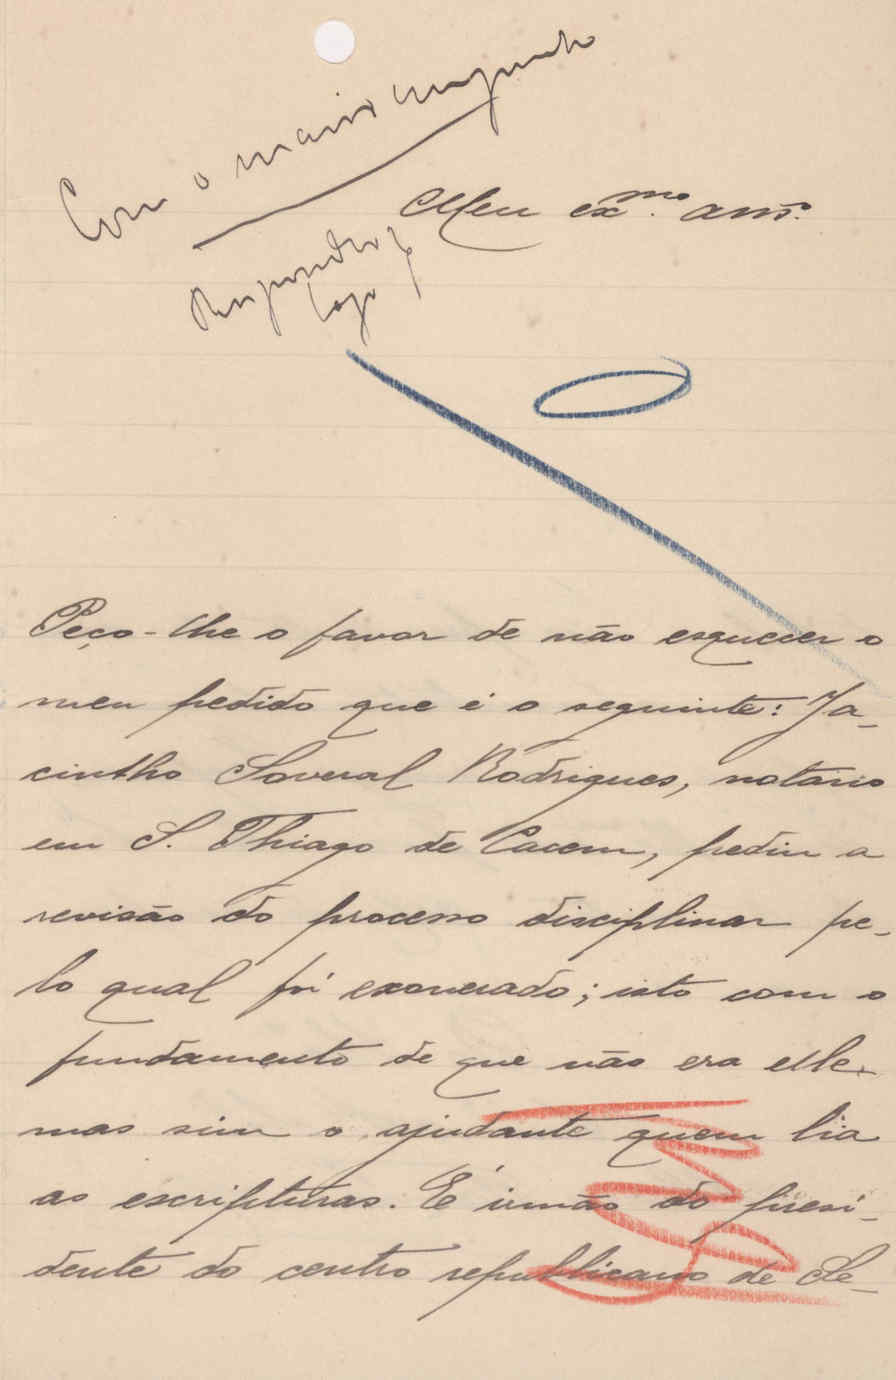 Com o maior
Meu exmo. amo.
Respondido
logo
Peço-lhe o favor de não esquecer o
meu pedido que é o seguinte: Ja-
cintho Soveral Rodrigues, notario
em S. Thiago de Cacem, pediu a
revisão do processo disciplinar pe-
lo qual foi exonerado; isto com o
fundamento de que não era elle
mas sim o ajudante quem lia
as escripturas. É irmão do presi-
dente do centro republicano de Se-